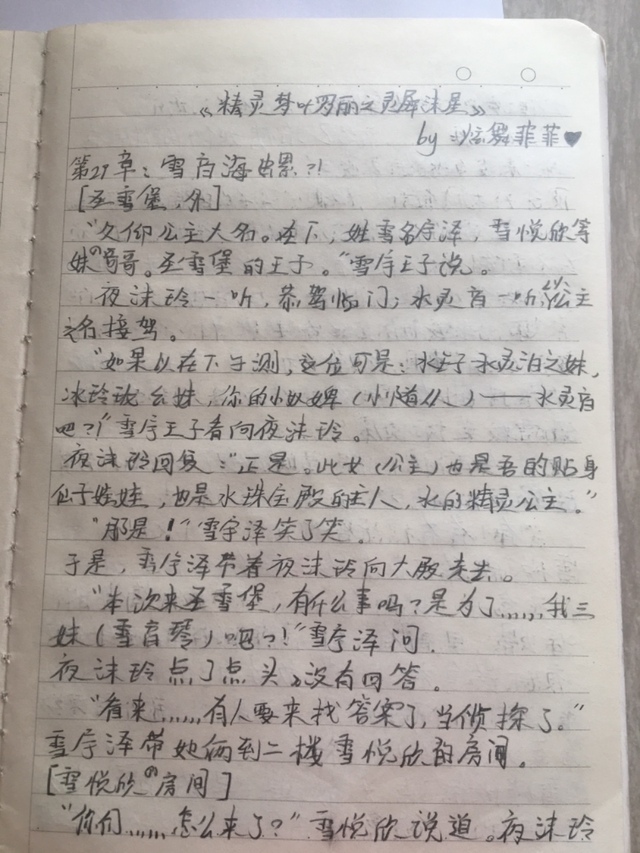 《精灵梦叶罗丽之灵犀沫星》
by 炫舞菲菲♥
第21章：雪音海出累?!
[圣雪堡，外]
“久仰公主大名。在下，姓雪名宇泽，雪悦欣等
妹の哥哥。圣雪堡的王子。”雪宇王子说。
夜沫玲一听，恭驾临门；水灵音一听，给公主
之名接驾。
“如果以在下予测，这位可是：水王子水灵泊之妹，
冰玲珑公妹，你的小奴婢（小随从）——水灵音
吧?!”雪宇王子看向夜沫玲。
夜沫玲回复：“正是。此女（公主）也是吾的贴身
仙子娃娃，也是水珠宝殿的主人，水的精灵公主。”
“那是！”雪宇泽笑了笑.
于是，雪宇泽带着夜沫玲向大殿走去。
“本次来圣雪堡，有什么事吗？是为了……我三
妹（雪音琴）吧?!”雪宇泽问.
夜沫玲点了点头，没有回答。
“看来……有人要来找答案了，当侦探了。”
雪宇泽带她俩到二楼雪悦欣的房间。
[雪悦欣の房间]
“你们……怎么来了？”雪悦欣说道。夜沫玲